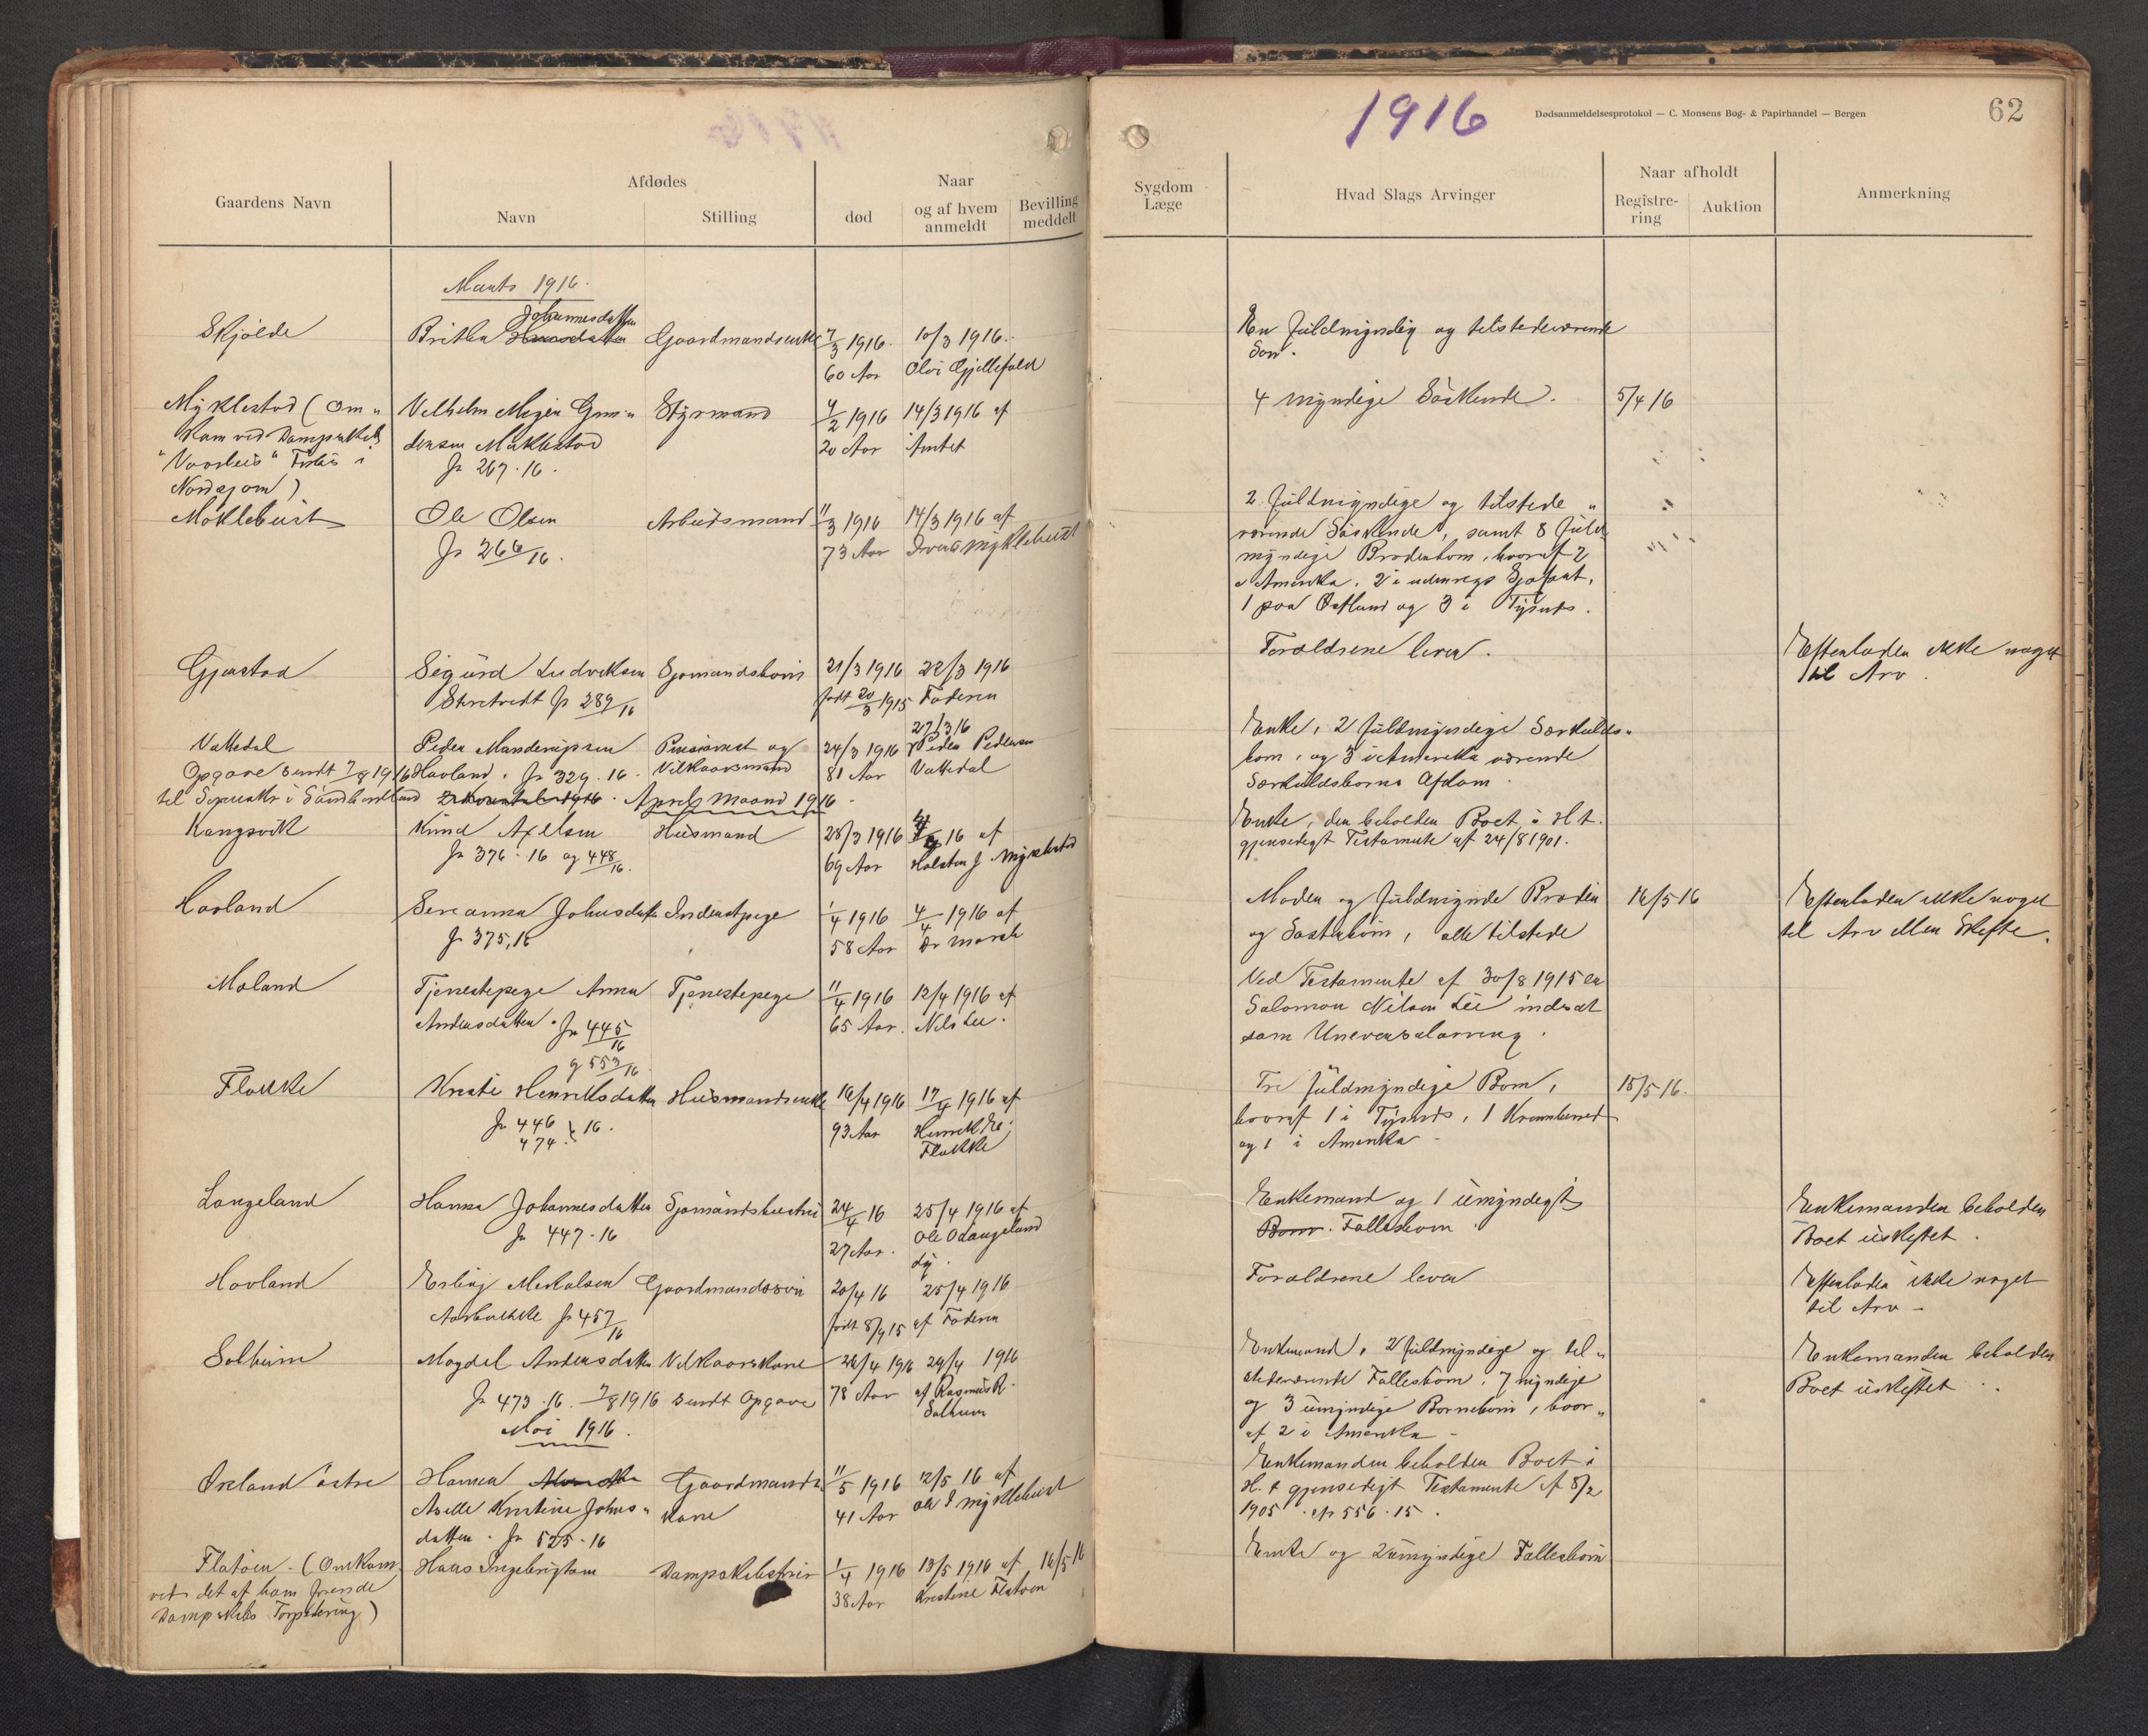 1916
Dødsanmeldelsesprotokol — C. Monsens Bog- & Papirhandel — Bergen
62
Gaardens Navn
Afdødes
Navn
Stilling
død
Naar
og af hvem
anmeldt
Bevilling
meddelt
Sygdom
Læge
Hvad Slags Arvinger
Naar afholdt
Registre-
ring
Auktion
Anmerkning
Marts 1916.
Johannesdatter
Skjelde Britha Gaardmandsenke 7/3 1916. 10/3 1916.
60 Aar
En fuldmyndig og tilstedeværende
Søn.
Myklestad (Om-
kom ved Dampskibet
i
Nordsjøen)
Vilhelm Styrmand 4/2 1916 14/3 1916 af
Myklestad 20 Aar Amtet
Jr 267.16.
4 myndige Søskende. 5/4 16
Møklebust Ole Olsen Arbeidsmand 11/3 1916 14/3 1916 af
Jr 266/16. 73 Aar Myklebust
2 fuldmyndige og tilstede-
værende Søskende, samt 8 fuld
myndige Broderbørn, hvoraf 2
i Amerika, 2 i udenrigs Sjøfart,
1 paa Østland og 3 i Tysnes.
Gjerstad Sigurd Ludviksen Sjømandsbarn 21/3 1916 22/3 1916
Jr 289/16 født 20/3 1915 Faderen
Forældrene lever.
Efterlader ikke noget
til Arv.
27/3 16
Vattedal Peder Pensionist og 24/3 1916 Peder Pedersen
Opgave sendt 7/8 1916 Havland. Jr 329.16. Vilkaarsmand 81 Aar Vattedal
til i
Enke, 2 fuldmyndige Særkulds-
børn, og 3 i Amerika værende
Særkuldsbørns Afkom.
April Maaned 1916.
Knud Axelsen Husmand 28/3 1916 16 af
Jr 376.16 og 448/16. 69 Aar Myklestad
Enke, der beholder Boet i H.t.
gjensidigt Testamente af 24/8 1901.
Havland Johnsdatter 1/4 1916 4/4 1916 af
Jr 375,16 58 Aar Dr
Moder og fuldmyndig Broder 16/5 16
og Søsterbørn, alle tilstede
Efterlader ikke noget
til Arv eller Skifte.
Moland Tjenestepige Anna Tjenestepige 11/4 1916 12/4 1916 af
Andersdatter. Jr 445/16 65 Aar. Nils Lie.
og 553/16
Ved Testamente af 30/8 1915 er
Salomon Nilsen Lie indsat
som Universalarving.
Flakke Henriksdatter Husmandsenke 16/4 1916 17/4 1916 af
Jr 446 } 16. 93 Aar
474 Flakke
Tre fuldmyndige Børn, 15/5 16.
hvoraf 1 i Tysnes, 1 Kvinnherred
og 1 i Amerika
Langeland Hanna Johannesdatter Sjømandshustru 24/4 16 25/4 1916 af
Jr 447.16 27 Aar. Ole O Langeland
Enkemand og 1 umyndigt
Barn. Fællesbarn
Enkemanden beholder
Boet uskiftet.
Hovland Erling Mikalsen Gaardmandssøn 20/4 16 25/4 1916
Jr 457/16 født 8/9 15 af Faderen
Forældrene lever
Efterlader ikke noget
til Arv -
Solheim Magdel Andersdatter Vilkaarskone 26/4 1916 29/4 1916
Jr 473.16. 7/8 1916 sendt Opgave 78 Aar af Rasmus R.
Solheim
Enkemand, 2 fuldmyndige og til-
stedeværende Fællesbørn, 7 myndige
og 3 umyndige Børnebørn, hvor-
af 2 i Amerika -
Enkemanden beholder
Boet uskiftet.
Mai 1916.
Øreland østre Hansen Gaardmands- 11/5 1916 12/5 16 af
Kristine Johns- kone 41 Aar Ole I Myklebust
datter. Jr 525.16
Enkemanden beholder Boet i
H. t gjensidigt Testamente af 8/2
1905. 556.15.
Flatøen - (Omkom Hans Ingebrigtsen 1/4 1916 13/5 1916 af 16/5 16
ved det af ham førende 38 Aar Kristine Flatøen
Dampskibs Torpedering)
Enke og 2 umyndige Fællesbørn